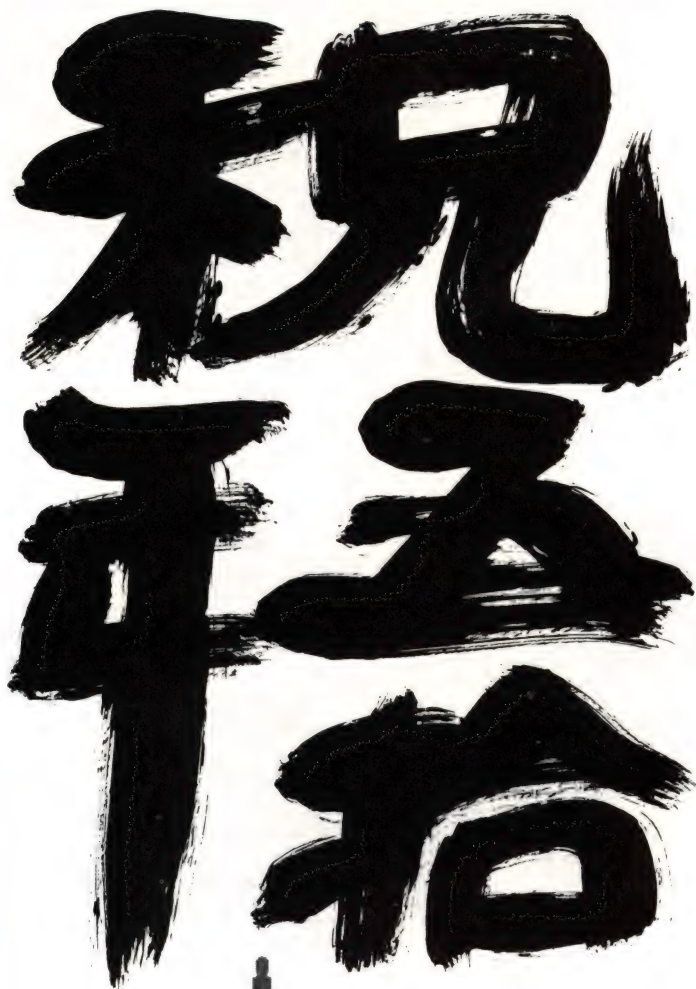 祝
五拾
年